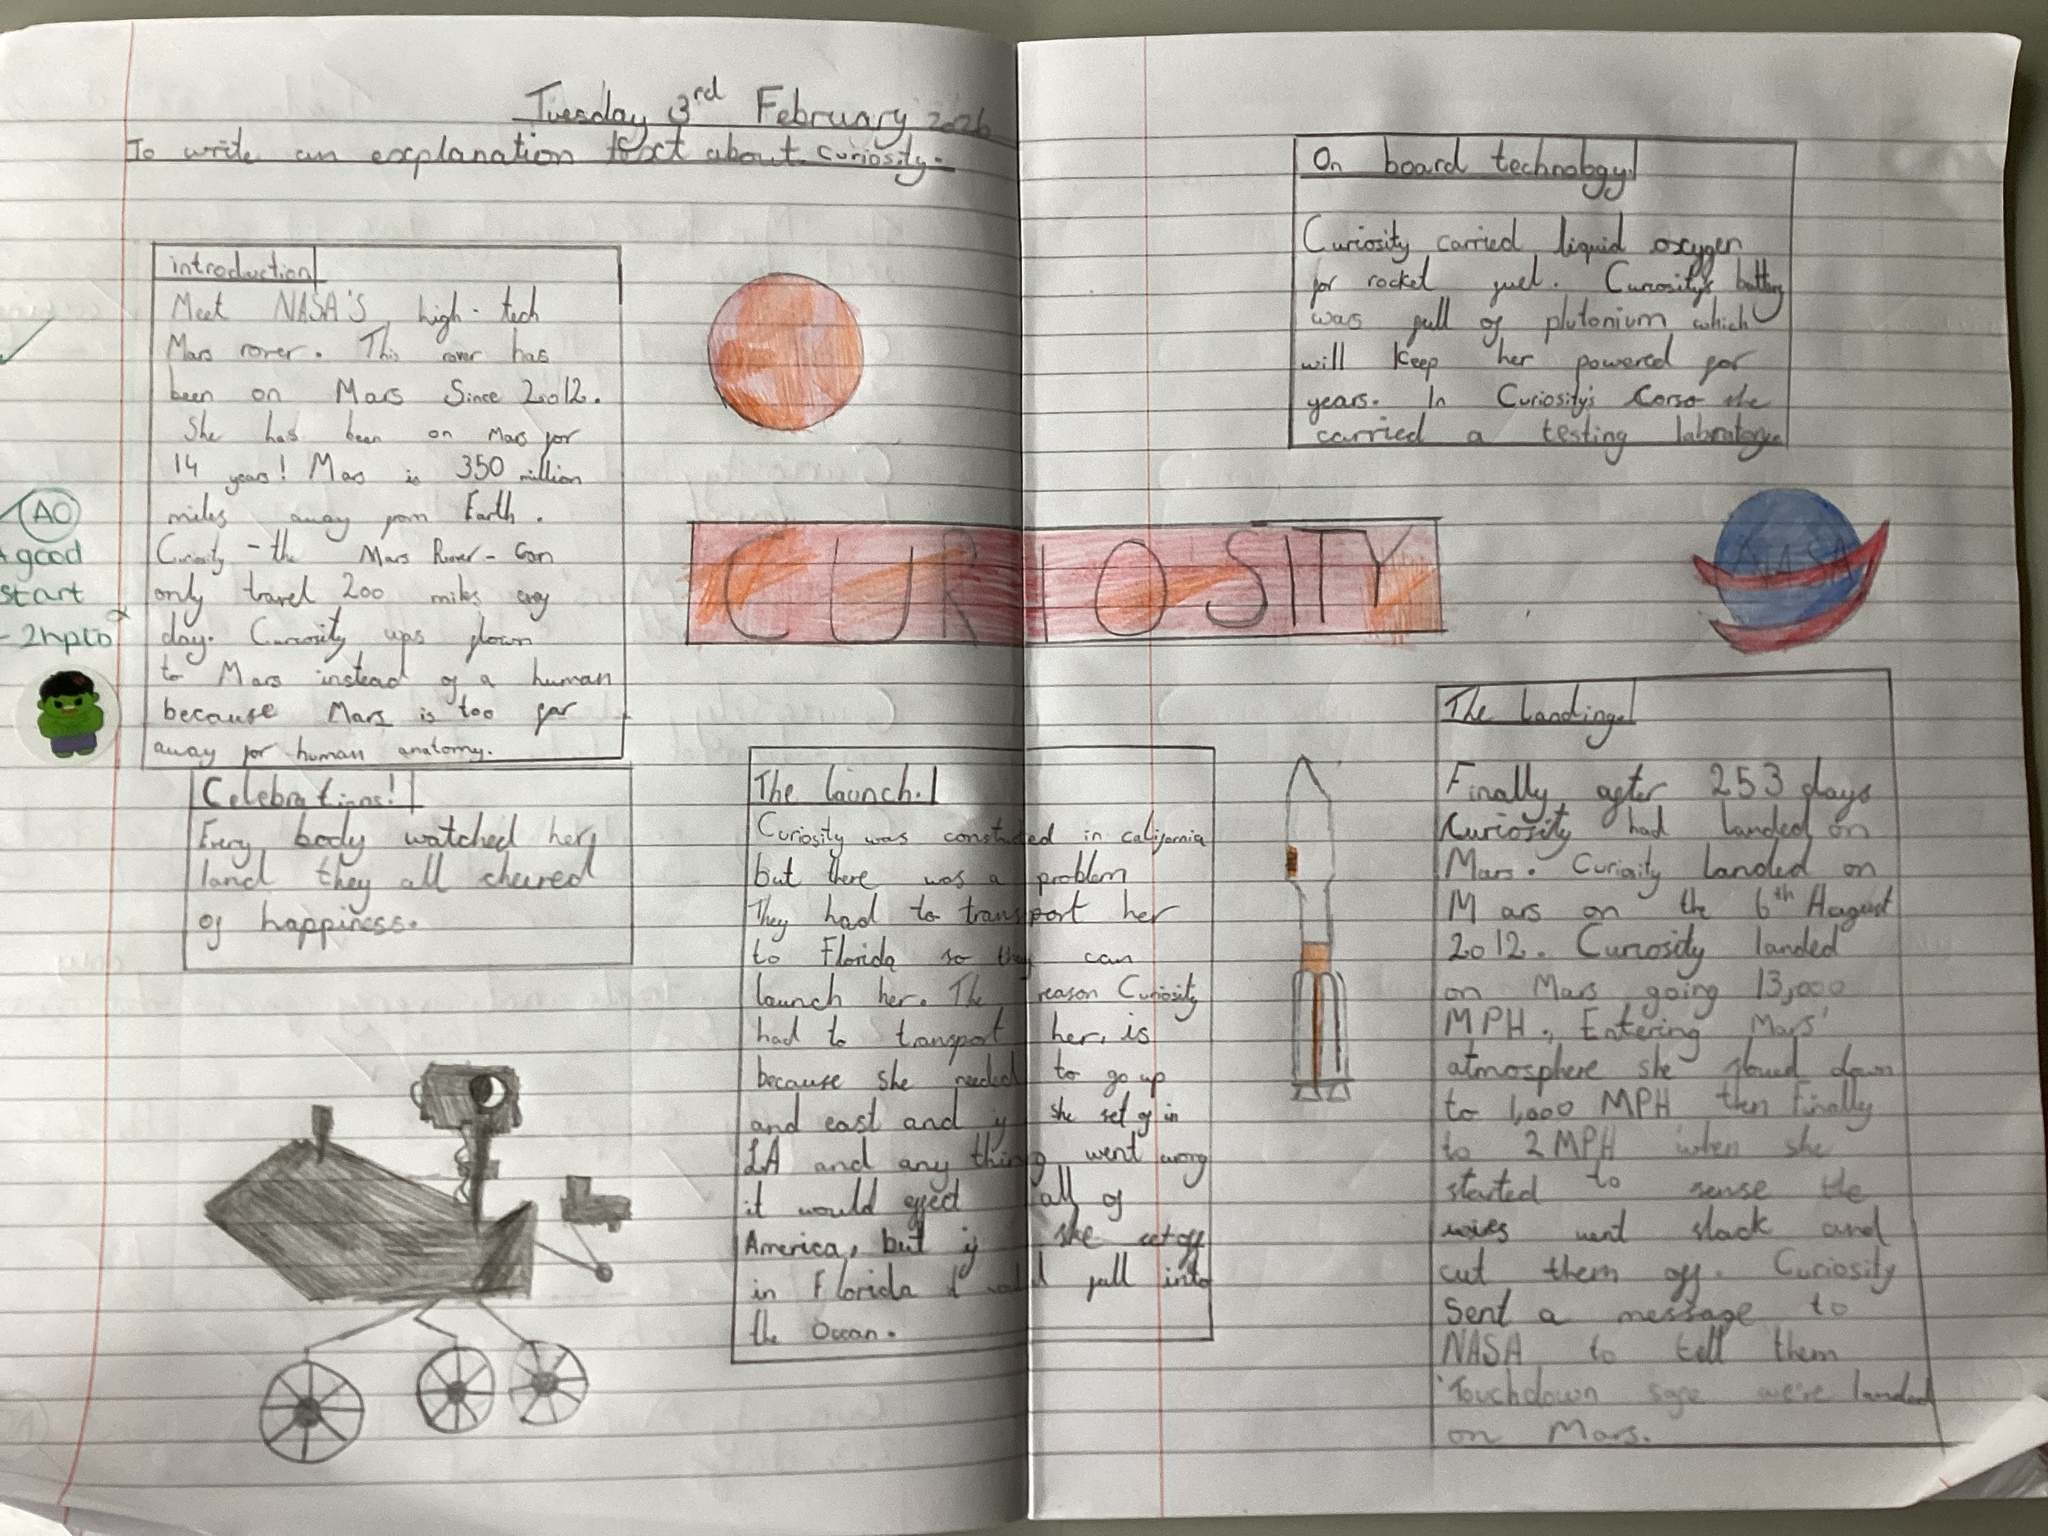 Tuesday 3rd February 2026
To write an explanation text about Curiosity.
introduction
Meet NASA'S high-tech
Mars rover. This rover has
been on Mars Since 2012.
She has been on Mars for
14 years! Mars is 350 million
miles away from Earth.
Curiosity - the Mars Rover - can
only travel 200 miles evry
day. Curiosity ups flown
to Mars instead of a human
because Mars is too far
away for human anatomy.
AO
A good
start
- 2hpto
Celebrations!
Every body watched her
land they all cheured
of happiness.
CURIOSITY
The launch.
Curiosity was constructed in california
but there was a problem
They had to transport her
to Florida so they can
launch her. The reason Curiosity
had to transport her, is
because she needed to go up
and east and if she set of in
LA and any thing went wrong
it would effect all of
America, but if she set off
in Florida it would fall into
the Ocean.
On board technology.
Curiosity carried liquid oxygen
for rocket fuel. Curiosity's battery
was full of plutonium which
will keep her powered for
years. In Curiosity's Corso she
carried a testing labratory.
NASA
The Landing.
Finally after 253 days
Curiosity had landed on
Mars. Curiosity landed on
Mars on the 6th August
2012. Curiosity landed
on Mars going 13,000
MPH. Entering Mars'
atmosphere she slowed down
to 1,000 MPH then Finally
to 2 MPH when she
started to sense the
wires went slack and
cut them off. Curiosity
Sent a message to
NASA to tell them
'Touchdown safe we're landed
on Mars.